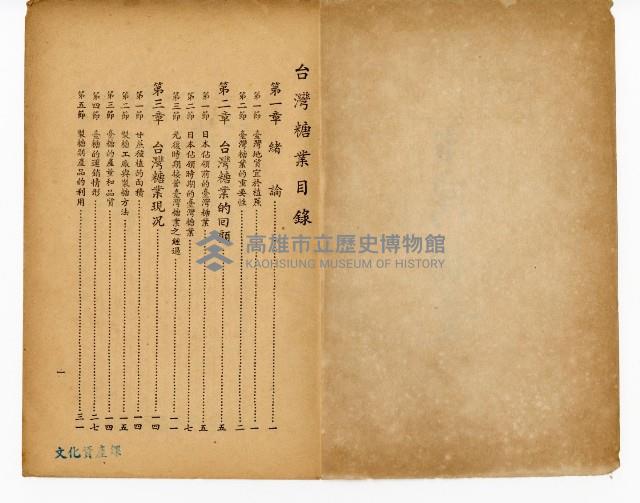 台灣糖業目錄
第一章 緒論……一
第一節 臺灣地質宜於植蔗……一
第二節 臺灣糖業的重要性……二
第二章 台灣糖業的回顧……五
第一節 日本佔領前的臺灣糖業……五
第二節 日本佔領時期的臺灣糖業……七
第三節 光復時期接管臺灣糖業之經過……一一
第三章 台灣糖業現况……一四
第一節 甘蔗種植的面積……一四
第二節 製糖工廠與製糖方法……一五
第三節 臺糖的產量和品質……一四
第四節 臺糖的運銷情形……二七
第五節 製糖副產品的利用……三一
一
文化資產課
高雄市立歷史博物館
KAOHSIUNG MUSEUM OF HISTORY